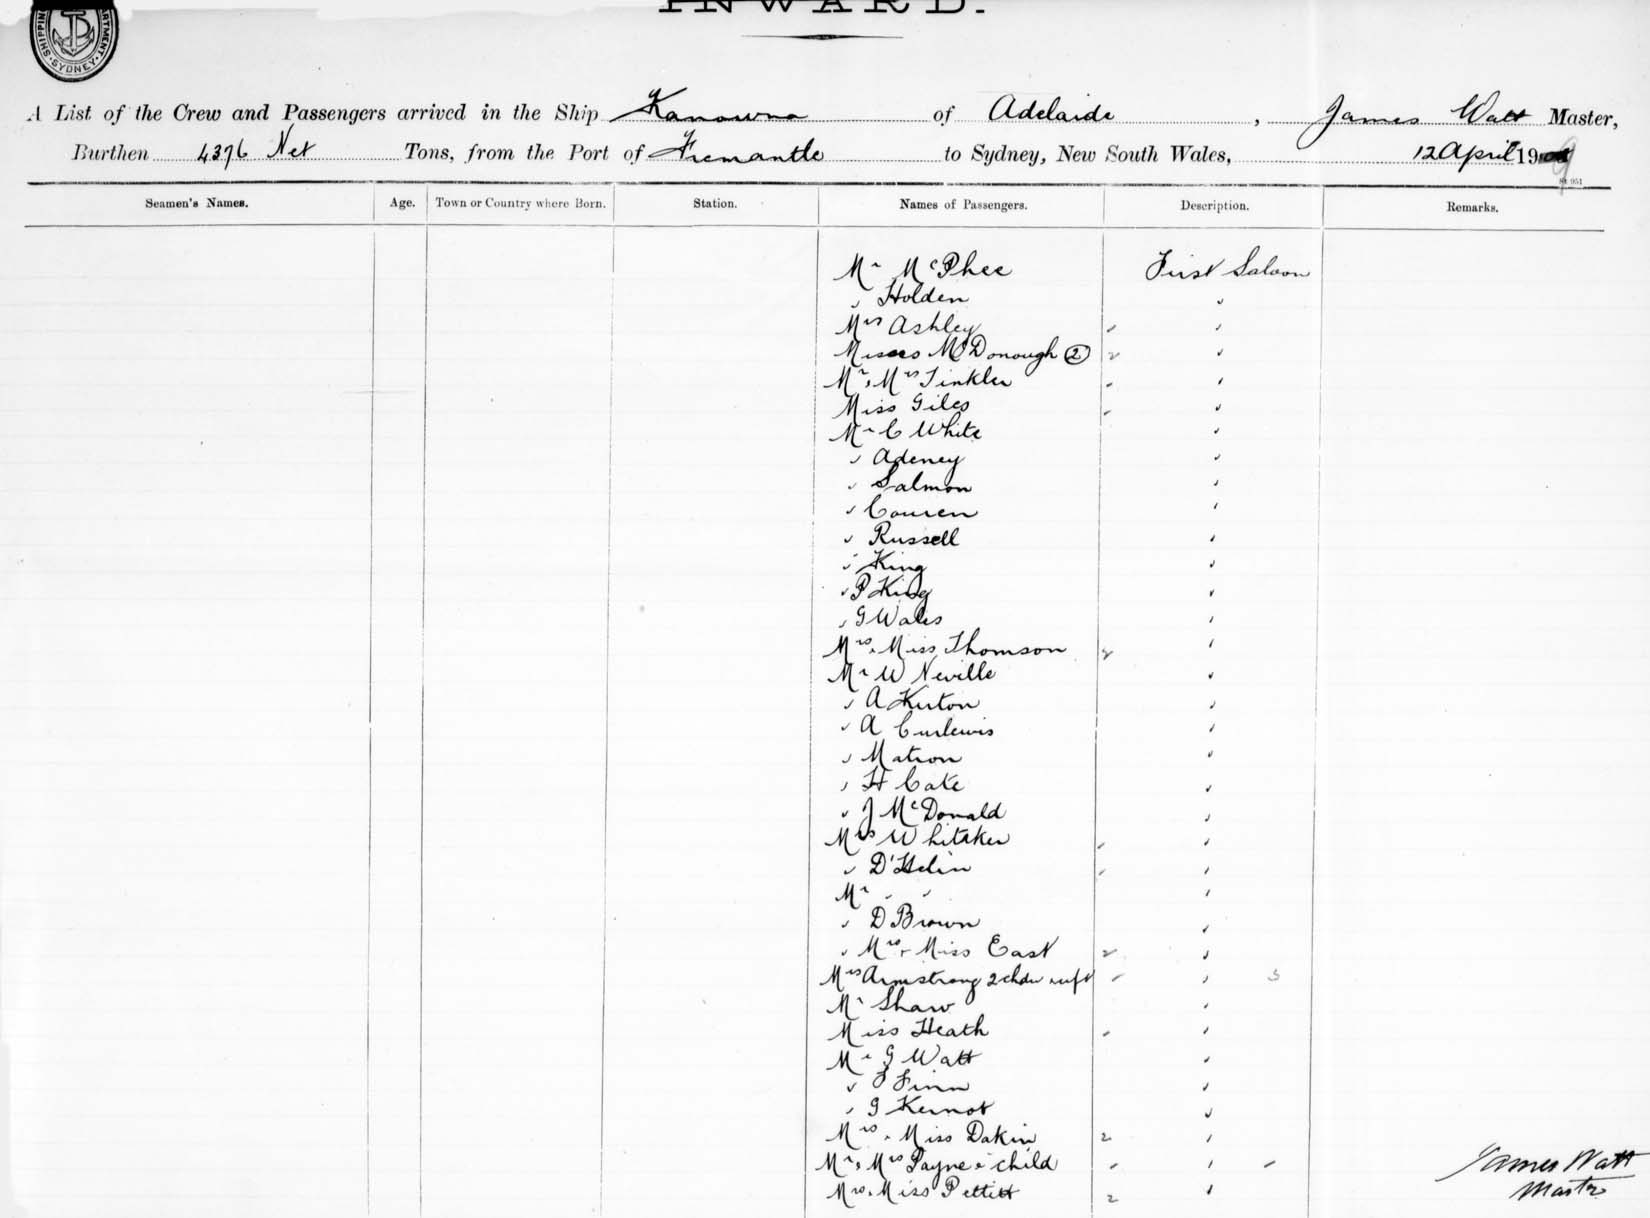 INWARD.
SHIPPING DEPARTMENT SYDNEY
A List of the Crew and Passengers arrived in the Ship Kanowna of Adelaide, James Watt Master,
Burthen 4376 Net Tons, from the Port of Fremantle to Sydney, New South Wales, 12 April 1909
Seamen's Names. Age. Town or Country where Born. Station. Names of Passengers. Description. Remarks.
Mr McPhee First Saloon
" Holden "
Mrs Ashley "
Misses McDonough 2 2 "
Mr, Mrs Tinkler "
Miss Giles "
Mr C White "
" Adeney "
" Salmon "
" Couren "
" Russell "
" King "
" P King "
" G Wales "
Mrs, Miss Thomson 2 "
Mr W Neville "
" A Kirton "
" A Curlewis "
" Matron "
" H Cate "
" J McDonald "
Mrs Whitaker "
" D'Helin "
Mr " " "
" D Brown "
" Mrs + Miss East 2 "
Mrs Armstrong 2 chdn " 3
Mr Shaw "
Miss Heath "
Mr G Watt "
" Finn "
" G Kernot "
Mrs, Miss Dakin 2 "
Mr, Mrs Payne & child "
Mrs, Miss Pettitt 2 "
James Watt
Master